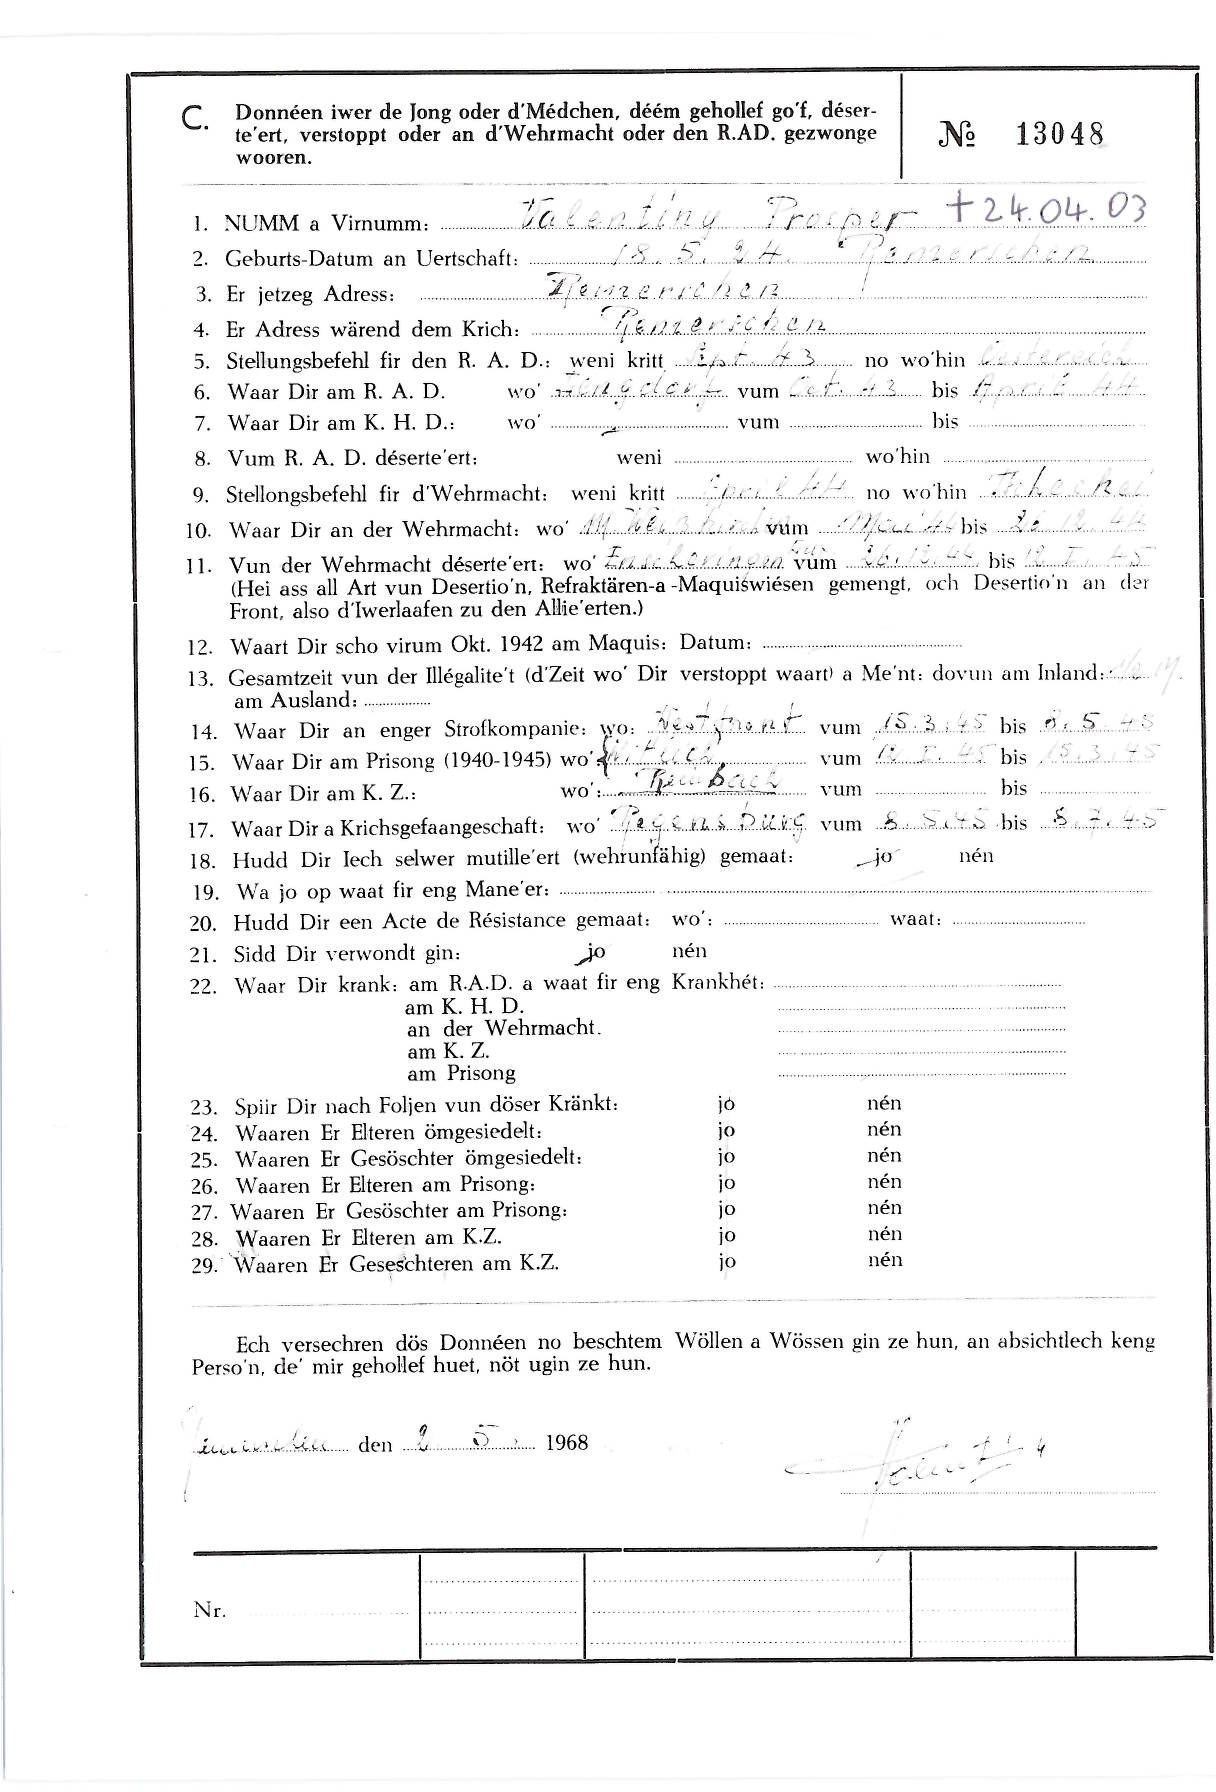 C. Donnéen iwer de Jong oder d'Médchen, déém gehollef go'f, déser-
te'ert, verstoppt oder an d'Wehrmacht oder den R.AD. gezwonge
wooren.
№ 13048
1. NUMM a Virnumm: Valentiny Prosper + 24.04.03
2. Geburts-Datum an Uertschaft: 18. 5. 24. Remerschen
3. Er jetzeg Adress: Remerschen
4. Er Adress wärend dem Krich: Remerschen
5. Stellungsbefehl fir den R. A. D.: weni kritt Sept. 43 no wo'hin Oestereich
6. Waar Dir am R. A. D. wo' vum Oct. 43 bis April 44
7. Waar Dir am K. H. D.: wo' vum bis
8. Vum R. A. D. déserte'ert: weni wo'hin
9. Stellongsbefehl fir d'Wehrmacht: weni kritt April 44 no wo'hin Tscheckei
10. Waar Dir an der Wehrmacht: wo' M. Weisskirchen vum Mai 44 bis 26 12. 44
11. Vun der Wehrmacht déserte'ert: wo' Enscheringen vum 26. 12. 44. bis 12. I. 45
(Hei ass all Art vun Desertio'n, Refraktären-a -Maquiswiésen gemengt, och Desertio'n an der
Front, also d'Iwerlaafen zu den Allie'erten.)
12. Waart Dir scho virum Okt. 1942 am Maquis: Datum:
13. Gesamtzeit vun der Illégalite't (d'Zeit wo' Dir verstoppt waart) a Me'nt: dovun am Inland: 1/2 M.
am Ausland:
14. Waar Dir an enger Strofkompanie: wo: Westfront vum 15. 3. 45 bis 8. 5. 45
15. Waar Dir am Prisong (1940-1945) wo' Wittlich vum 12. I. 45 bis 15. 3. 45
16. Waar Dir am K. Z.: wo': Reinbach vum bis
17. Waar Dir a Krichsgefaangeschaft: wo' Regensburg vum 8. 5. 45 bis 8. 7. 45
18. Hudd Dir Iech selwer mutille'ert (wehrunfähig) gemaat: jo nén
19. Wa jo op waat fir eng Mane'er:
20. Hudd Dir een Acte de Résistance gemaat: wo': waat:
21. Sidd Dir verwondt gin: jo nén
22. Waar Dir krank: am R.A.D. a waat fir eng Krankhét:
am K. H. D.
an der Wehrmacht.
am K. Z.
am Prisong
23. Spiir Dir nach Foljen vun döser Kränkt: jo nén
24. Waaren Er Elteren ömgesiedelt: jo nén
25. Waaren Er Gesöschter ömgesiedelt: jo nén
26. Waaren Er Elteren am Prisong: jo nén
27. Waaren Er Gesöschter am Prisong: jo nén
28. Waaren Er Elteren am K.Z. jo nén
29. Waaren Er Geseschteren am K.Z. jo nén
Ech versechren dös Donnéen no beschtem Wöllen a Wössen gin ze hun, an absichtlech keng
Perso'n, de' mir gehollef huet, nöt ugin ze hun.
Remerschen den 2 5. 1968
Nr.